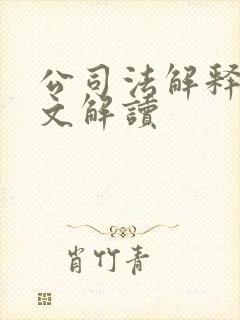 公司法解释
文解讀
肖竹青